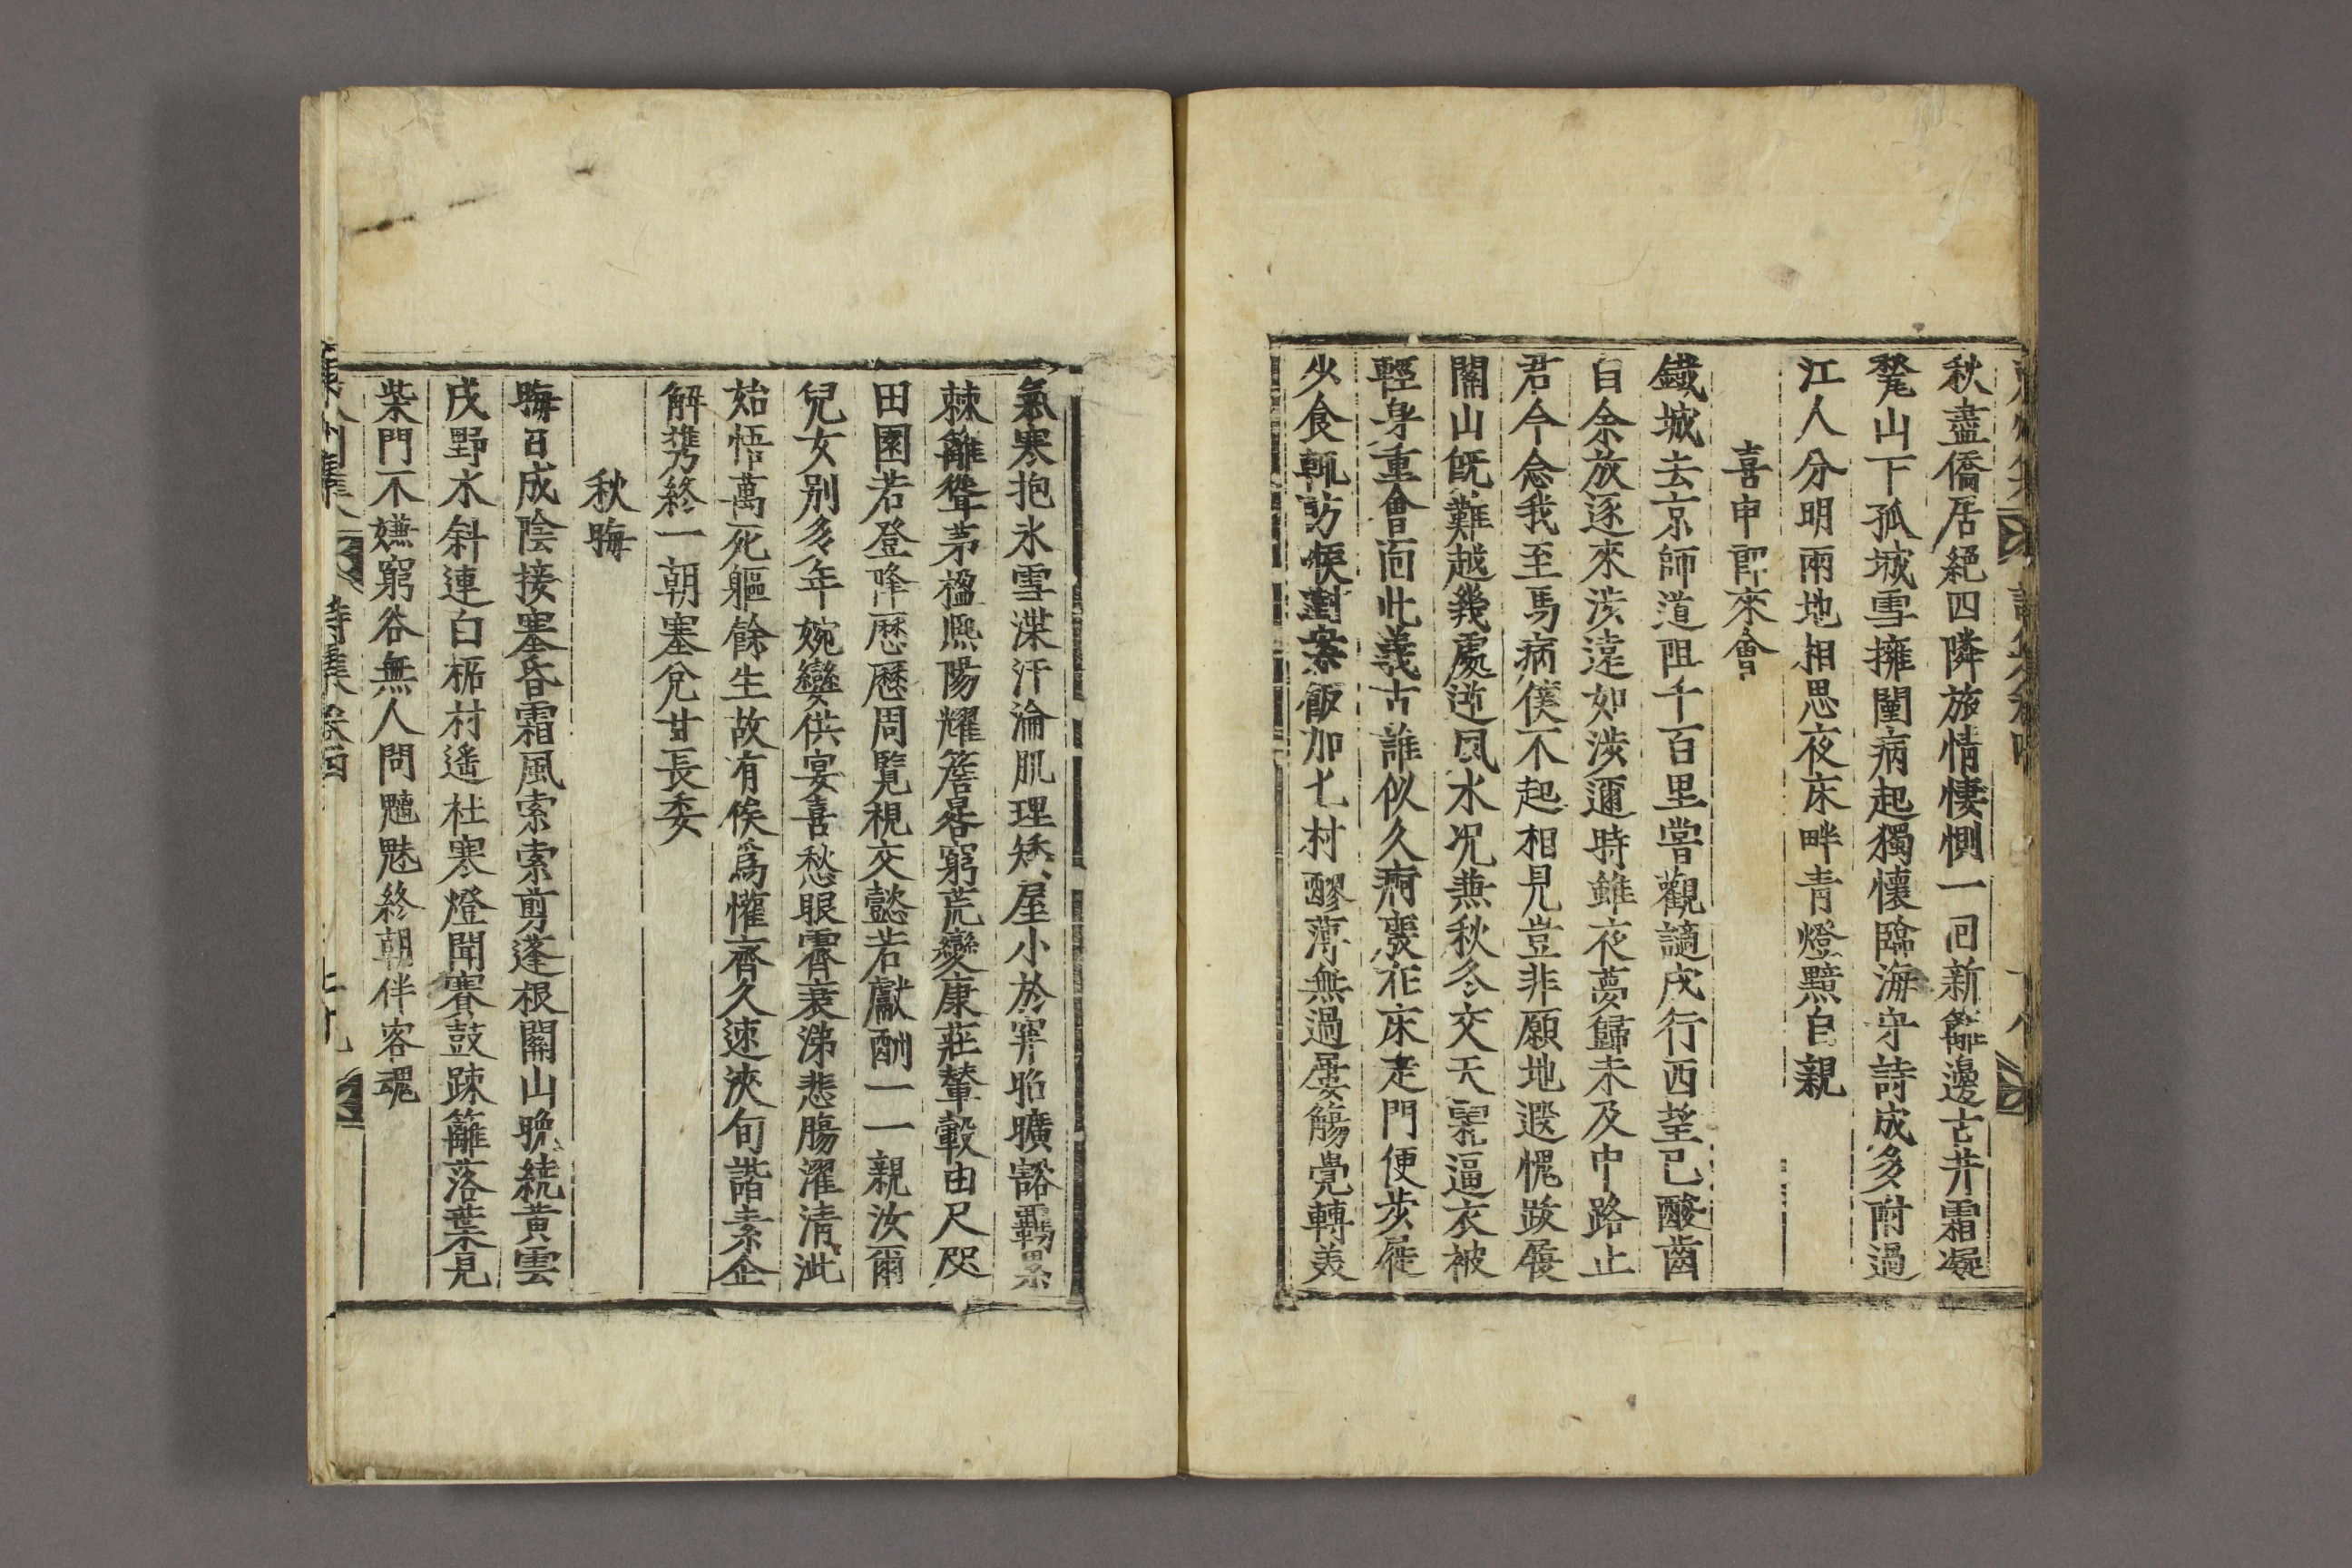 秋盡僑居絕四隣旅情悽惻一回新籬邊古井霜凝
甃山下孤城雪擁闉病起獨懷臨海守詩成多附過
江人分明兩地相思夜床畔青燈黯自親
喜申郎來會
鐵城去京師道阻千百里嘗觀謫戍行西望已酸齒
自余放逐來涉遠如涉邇時雖夜夢歸未及中路止
君今念我至馬病僕不起相見豈非願地遐愧跋履
關山旣難越幾處逆風水况兼秋冬交天寒逼衣被
輕身重會面此義古誰似久病裏在床走門便步屣
少食輒訪候對案飯加匕村醪薄無過屢觴覺轉美
氣寒抱氷雪渫汗淪肌理矮屋小於穽昭曠豁羈累
棘籬聳茅楹熙陽耀簷晷窮荒變康莊輦轂由尺咫
田園若登降歷歷周覽視交懿若獻酬一一親汝爾
兒女别多年婉孌供宴喜愁眼霽衰涕悲腸濯淸泚
始悟萬死軀餘生故有俟爲懽齊久速浹旬諧素企
解携終一朝塞兌甘長委
秋晦
晦日成陰接塞昏霜風索索剪蓬根關山晩繞黄雲
戍野水斜連白柳村遙社寒燈聞賽鼓踈籬落葉見
柴門不嫌窮谷無人問魑魅終朝伴客魂
詩集卷四